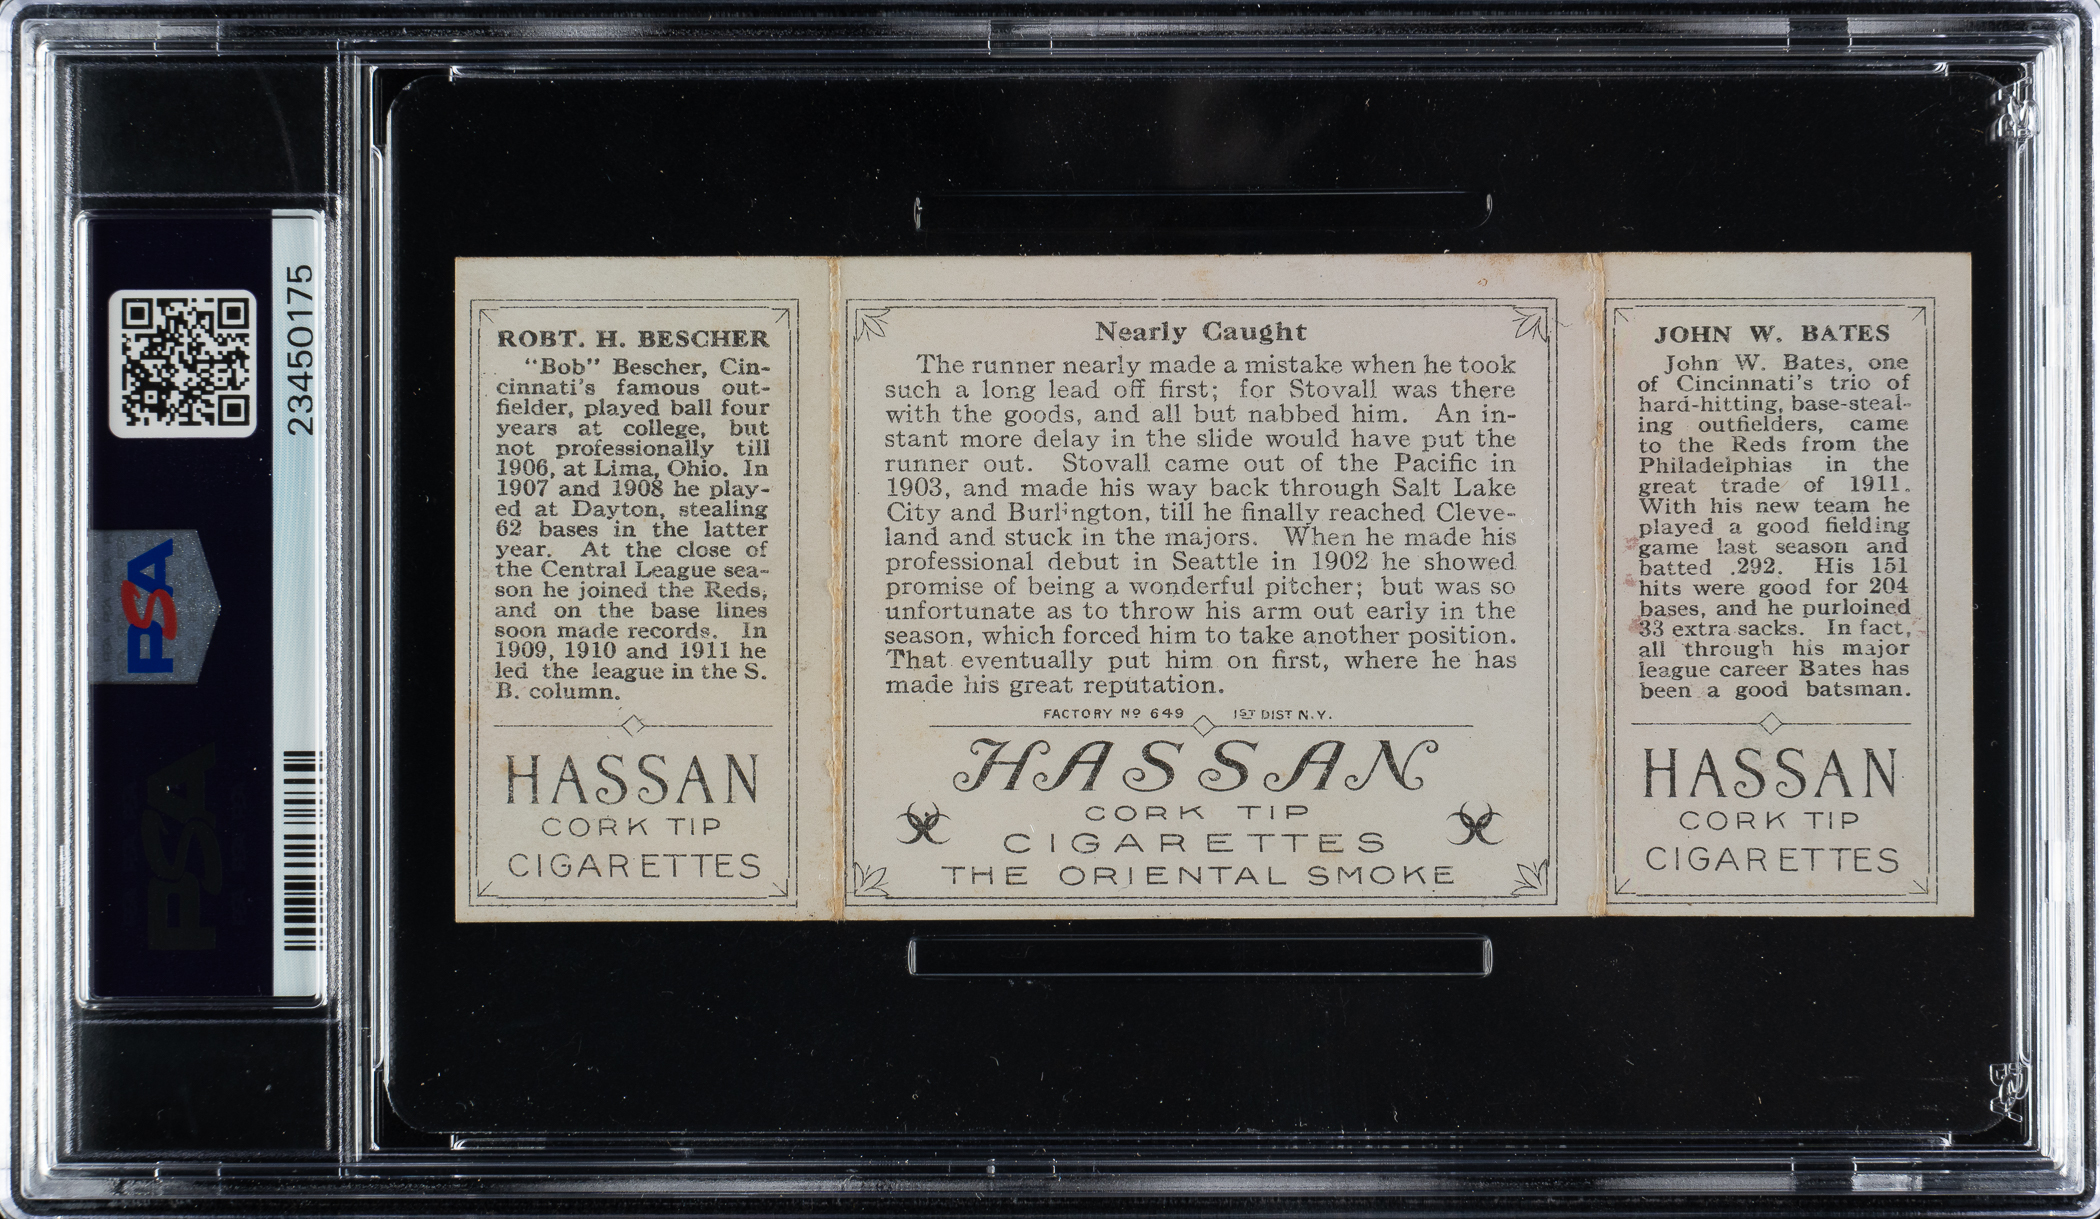 23450175
PSA
PSA
ROBT. H. BESCHER
"Bob" Bescher, Cin-
cinnati's famous out-
fielder, played ball four
years at college, but
not professionally till
1906, at Lima, Ohio. In
1907 and 1908 he play-
ed at Dayton, stealing
62 bases in the latter
year. At the close of
the Central League sea-
son he joined the Reds,
and on the base lines
soon made records. In
1909, 1910 and 1911 he
led the league in the S.
B. column.
HASSAN
CORK TIP
CIGARETTES
Nearly Caught
The runner nearly made a mistake when he took
such a long lead off first; for Stovall was there
with the goods, and all but nabbed him. An in-
stant more delay in the slide would have put the
runner out. Stovall came out of the Pacific in
1903, and made his way back through Salt Lake
City and Burlington, till he finally reached Cleve-
land and stuck in the majors. When he made his
professional debut in Seattle in 1902 he showed
promise of being a wonderful pitcher; but was so
unfortunate as to throw his arm out early in the
season, which forced him to take another position.
That eventually put him on first, where he has
made his great reputation.
FACTORY Nº 649 1ST DIST N.Y.
HASSAN
CORK TIP
CIGARETTES
THE ORIENTAL SMOKE
JOHN W. BATES
John W. Bates, one
of Cincinnati's trio of
hard-hitting, base-steal-
ing outfielders, came
to the Reds from the
Philadelphias in the
great trade of 1911.
With his new team he
played a good fielding
game last season and
batted .292. His 151
hits were good for 204
bases, and he purloined
33 extra sacks. In fact,
all through his major
league career Bates has
been a good batsman.
HASSAN
CORK TIP
CIGARETTES